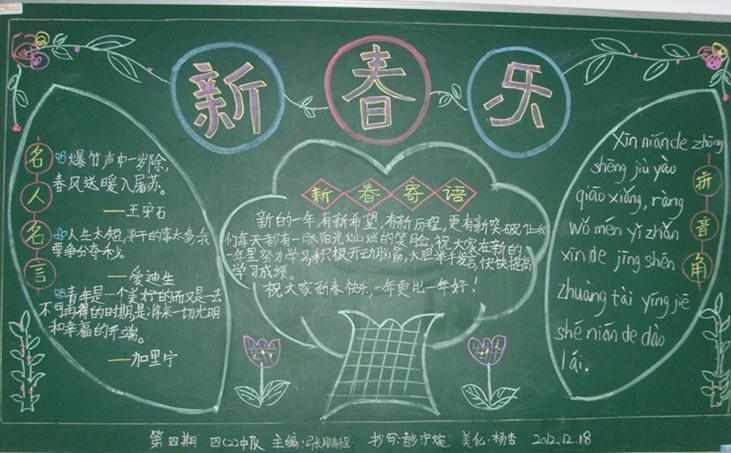 新春乐
名人名言
爆竹声中一岁除,
春风送暖入屠苏。
——王安石
人生太短,要干的事太多,我
要争分夺秒。
——爱迪生
青年是一个美好的而又是一去
不可再得的时期,是将来一切光明
和幸福的开端。
——加里宁
新春寄语
新的一年,有新希望,有新历程,更有新突破,让我
们每天都有一张阳光灿烂的笑脸,祝大家在新的
一年里努力学习,积极开动脑筋,大胆举手发言,快快提高
学习成绩。
祝大家新春快乐,一年更比一年好!
拼音角
Xīn nián de zhōng
shēng jiù yào
qiāo xiǎng, ràng
wǒ mén yǐ zhǎn
xīn de jīng shén
zhuàng tài yíng jiē
shé nián de dào
lái.
第四期 四(2)中队 主编: 书写: 美化:杨杏 2012.12.18